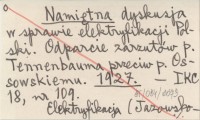 Namiętna dyskusja
w sprawie elektryfikacji Pol-
ski. Odparcie zarzutów p.
Tennenbauma przeciw p. Os-
sowskiemu. 1927. — IKC
18, nr 109.
Elektryfikacja (Jazowsko-